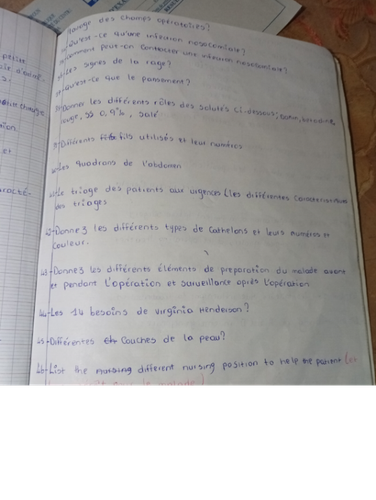 des champs opératoires?
Qu'est-ce qu'une infection nosocomiale?
comment peut-on contracter une infection nosocomiale?
Les signes de la rage?
Qu'est-ce que le pansement?
Donner les différents rôles des solutés ci-dessous:
rouge, SS 0,9%, salé
Différents fils utilisés et leur numéros
Les quadrons de l'abdomen
Le triage des patients aux urgences (les différentes
des triages
42-Donnez les différents types de Cathelons et leurs numéros et
Couleur.
43-Donnez les différents éléments de préparation du malade avant
et pendant l'opération et surveillance après l'opération
44-Les 14 besoins de virginia Henderson?
45-Différentes Couches de la peau?
46-List the different nursing position to help the patient